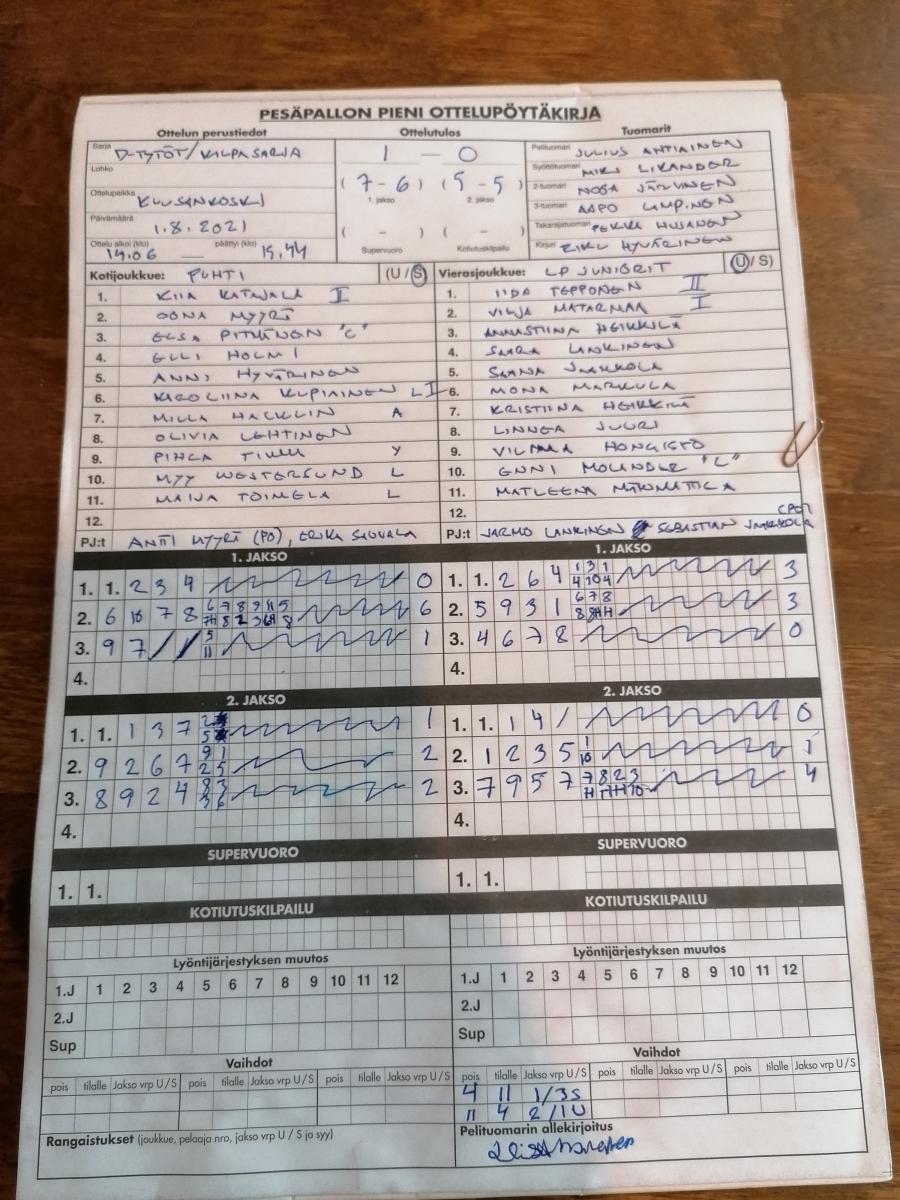 PESÄPALLON PIENI OTTELUPÖYTÄKIRJA
Ottelun perustiedot
Sarja D-TYTÖT/KILPASARJA
Lohko
Ottelupaikka KUUSANKOSKI
Päivämäärä 1.8.2021
Ottelu alkoi (klo) päättyi (klo)
14.06 — 15.44
Ottelutulos
1 — 0
(7-6) (5-5)
1. jakso 2. jakso
( - ) ( - )
Supervuoro Kotiutuskilpailu
Tuomarit
Pelituomari JULIUS ANTIAINEN
Syöttötuomari MIKI LIKANDER
2-tuomari NOGA JÄRVINEN
3-tuomari AAPO
Takarajatuomari PEKKA HUJANEN
Kirjuri HYVÄRINEN
Kotijoukkue: PUHTI (U/S)
1. KIIA KATAJALA I
2. OONA MYYRÄ
3. ELSA PITKÄNEN "C"
4. ELLI HOLMI
5. ANNI HYVÄRINEN
6. KAROLIINA KUPIAINEN LI
7. MILLA HACKLIN A
8. OLIVIA LEHTINEN
9. TIMM Y
10. MYY WESTERSUND L
11. MAIJA TOIMELA L
12.
PJ:t ANTTI MYYRÄ (PÖ), ERIKA SAUVALA
Vierasjoukkue: LP JUNIORIT (U/S)
1. IIDA TEPPONEN II
2. VILJA MATARMAA I
3. ANNASTIINA HEIKKILÄ
4. SAARA LANKINEN
5. SAANA JAAKKOLA
6. MONA MARKULA
7. KRISTIINA HEIKKILÄ
8. LINNEA JUURI
9. VILMMA HONGISTO
10. ENNI MOLANDER "C"
11. MATLEENA
12.
PJ:t JARMO LANKINEN SEBASTIAN JAAKKOLA
1. JAKSO
1. 1. 2 3 4 0
2. 6 10 7 8 6
3. 9 7 / / 5 11 1
4.
1. JAKSO
1. 1. 2 6 4 1 3 1 4 10 4 3
2. 5 9 3 1 6 7 8 3
3. 4 6 7 8 0
4.
2. JAKSO
1. 1. 1 3 7 2 5 1
2. 9 2 6 7 9 1 2 5 2
3. 8 9 2 4 8 3 3 6 2
4.
2. JAKSO
1. 1. 1 4 / 0
2. 1 2 3 5 1 10 1
3. 7 9 5 7 7 8 2 3 4
4.
SUPERVUORO
1. 1.
SUPERVUORO
1. 1.
KOTIUTUSKILPAILU
KOTIUTUSKILPAILU
Lyöntijärjestyksen muutos
1.J 1 2 3 4 5 6 7 8 9 10 11 12
2.J
Sup
Lyöntijärjestyksen muutos
1.J 1 2 3 4 5 6 7 8 9 10 11 12
2.J
Sup
Vaihdot
pois tilalle Jakso vrp U/S pois tilalle Jakso vrp U/S pois tilalle Jakso vrp U/S
Vaihdot
pois tilalle Jakso vrp U/S pois tilalle Jakso vrp U/S pois tilalle Jakso vrp U/S
4 11 1/3S
11 4 2/1U
Rangaistukset (joukkue, pelaaja nro, jakso vrp U / S ja syy)
Pelituomarin allekirjoitus